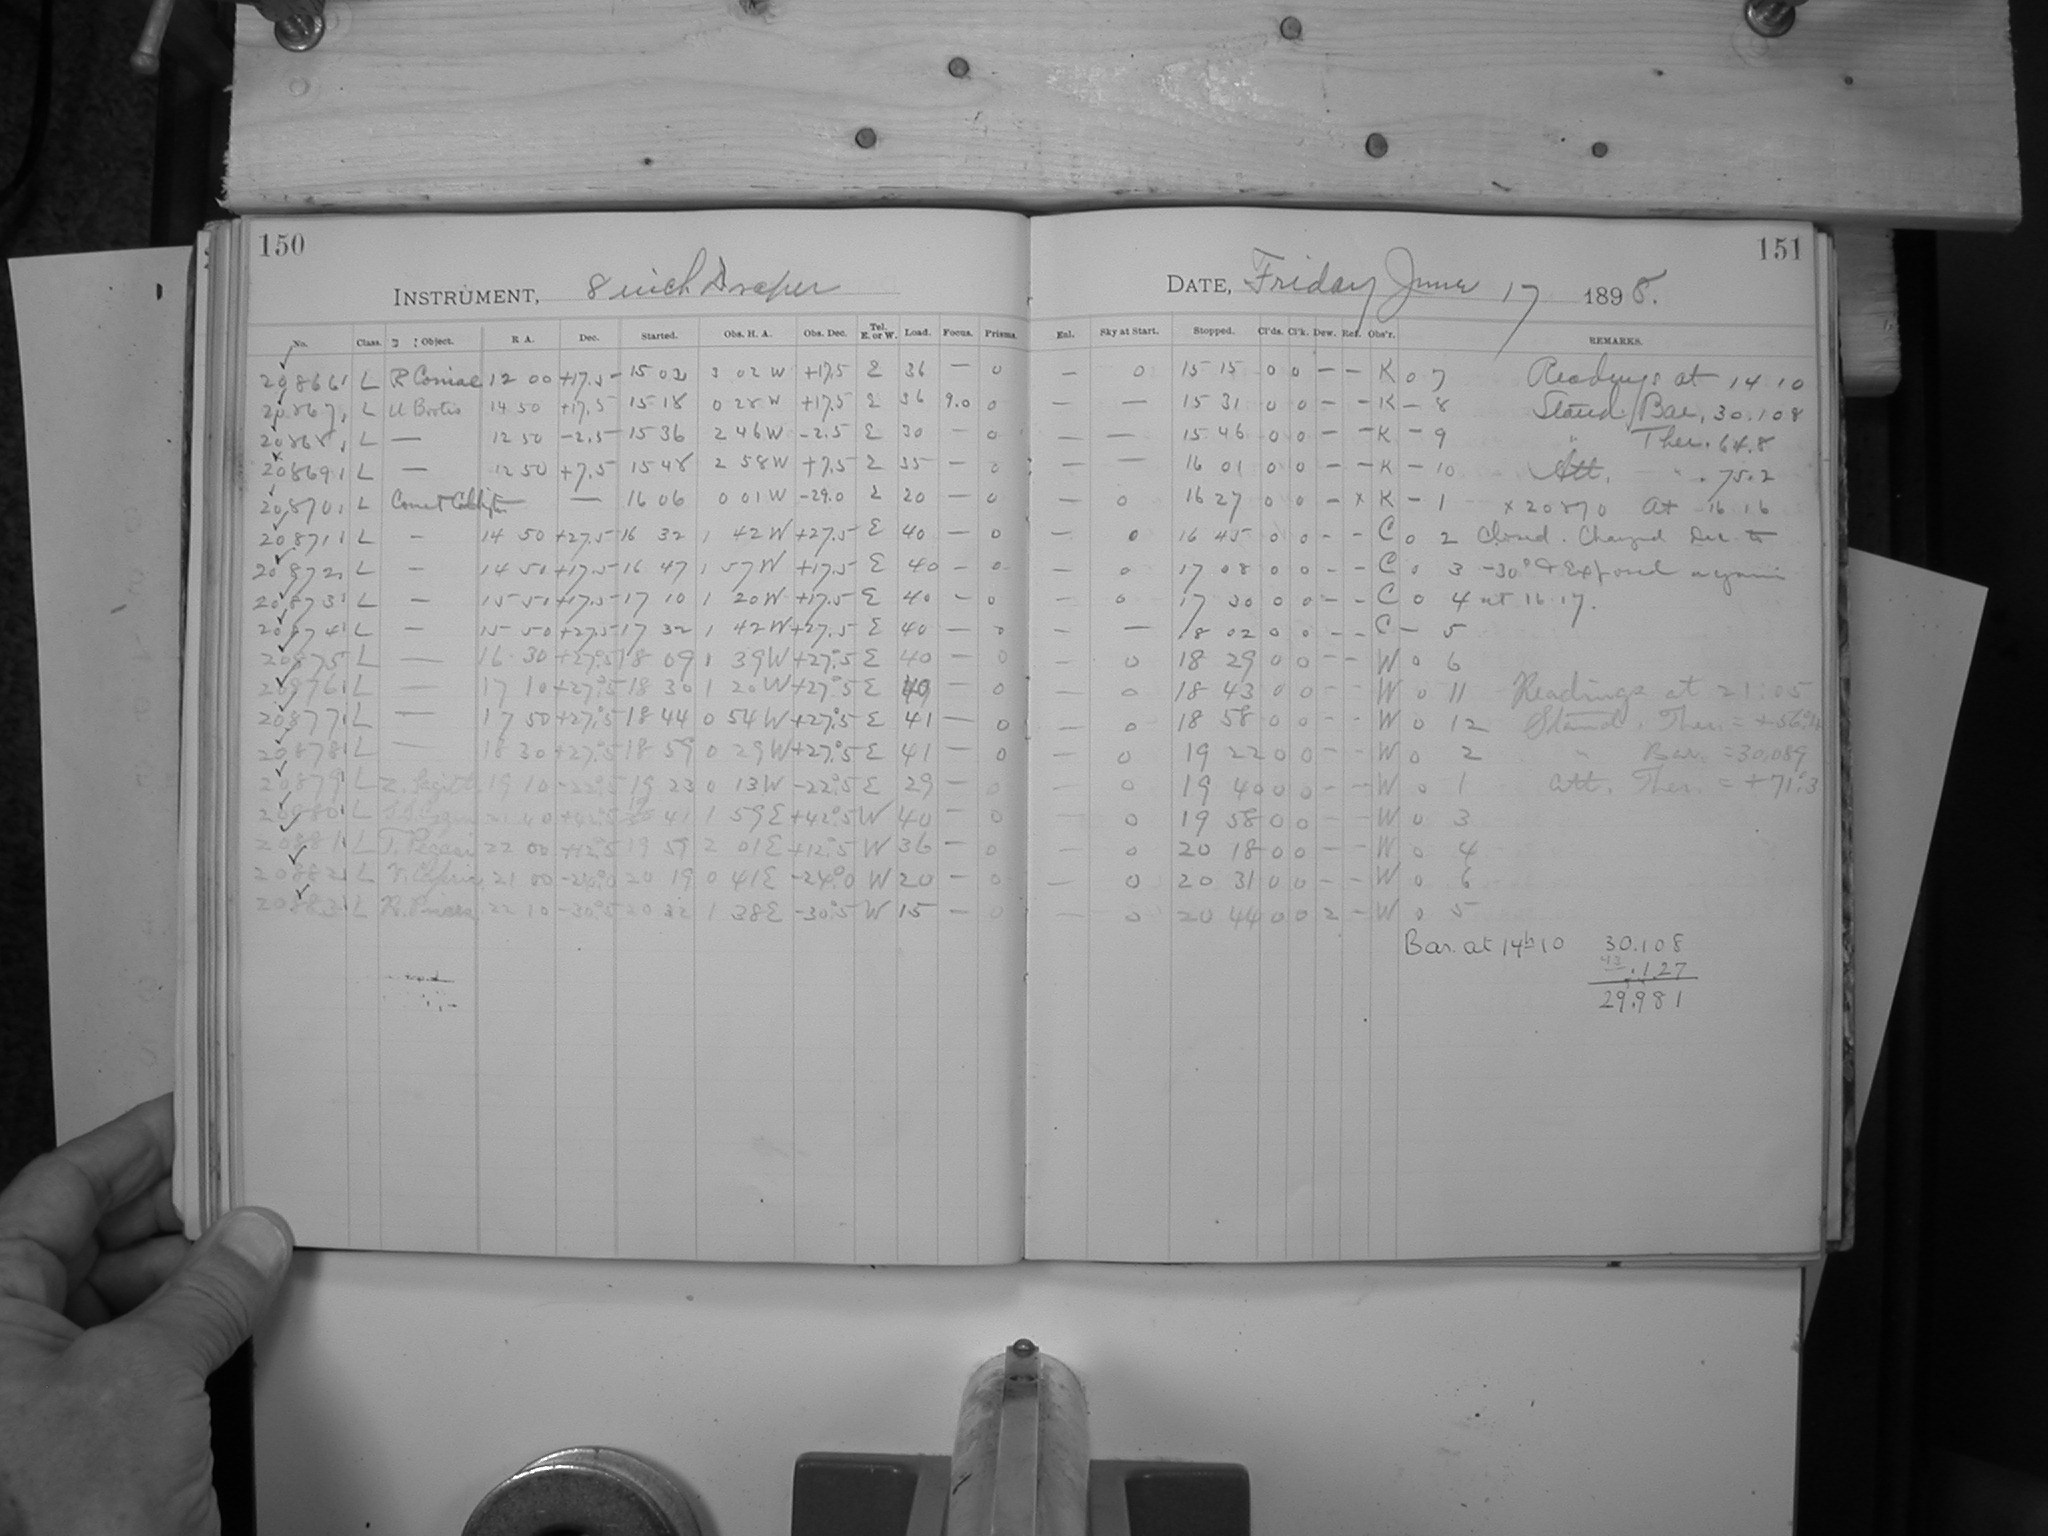 150
INSTRUMENT, 8 inch Draper
No. Class. Object. R A. Dec. Started. Obs. H. A. Obs. Dec. Tel. E. or W. Load. Focus. Prisms.
20866 L R Comae 12 00 +17.5 15 02 3 02 W +17.5 E 36 — 0
20867 L U Bootis 14 50 +17.5 15 18 0 28 W +17.5 E 36 9.0 0
20868 L — 12 50 -2.5 15 36 2 46 W -2.5 E 30 — 0
20869 L — 12 50 +7.5 15 48 2 58 W +7.5 E 35 — 0
20870 L Comet — — 16 06 0 01 W -29.0 E 20 — 0
20871 L — 14 50 +27.5 16 32 1 42 W +27.5 E 40 — 0
20872 L — 14 50 +17.5 16 47 1 57 W +17.5 E 40 — 0
20873 L — 15 50 +17.5 17 10 1 20 W +17.5 E 40 — 0
20874 L — 15 50 +27.5 17 32 1 42 W +27.5 E 40 — 0
20875 L — 16 30 +27°.5 18 09 1 39 W +27°.5 E 40 — 0
20876 L — 17 10 +27°.5 18 30 1 20 W +27°.5 E 40 — 0
20877 L — 17 50 +27°.5 18 44 0 54 W +27°.5 E 41 — 0
20878 L — 18 30 +27°.5 18 59 0 29 W +27°.5 E 41 — 0
20879 L Z. Sagitt. 19 10 -22°.5 19 23 0 13 W -22°.5 E 29 — 0
20880 L 21 40 +42°.5 19 41 1 59 E +42°.5 W 40 — 0
20881 L T. Pegasi 22 00 +12°.5 19 59 2 01 E +12°.5 W 36 — 0
20882 L 21 00 -24°.0 20 19 0 41 E -24°.0 W 20 — 0
20883 L 22 10 -30°.5 20 32 1 38 E -30°.5 W 15 — 0
151
DATE, Friday June 17 1898.
Enl. Sky at Start. Stopped. Cl'ds. Cl'k. Dew. Ref. Obs'r. REMARKS.
— 0 15 15 0 0 — — K 0 7 Readings at 14 10
— — 15 31 0 0 — — K — 8 Stand. Bar. 30.108
— — 15 46 0 0 — — K — 9 " Ther. 64.8
— — 16 01 0 0 — — K — 10 Att. " . 75.2
— 0 16 27 0 0 — x K — 1 x 20870 At 16 16
— 0 16 45 0 0 — — C 0 2 Closed. Changed Dec. to
— 0 17 08 0 0 — — C 0 3 -30° & Exposed again
— 0 17 30 0 0 — — C 0 4 at 16 17.
— — 18 02 0 0 — — C — 5
— 0 18 29 0 0 — — W 0 6
— 0 18 43 0 0 — — W 0 11 Readings at 21:05
— 0 18 58 0 0 — — W 0 12 Stand. Ther. = +56°.4
— 0 19 22 0 0 — — W 0 2 " Bar. = 30.089
— 0 19 40 0 0 — — W 0 1 Att. Ther. = +71°.3
— 0 19 58 0 0 — — W 0 3
— 0 20 18 0 0 — — W 0 4
— 0 20 31 0 0 — — W 0 6
— 0 20 44 0 0 2 — W 0 5
Bar. at 14h 10 30.108
.127
29.981